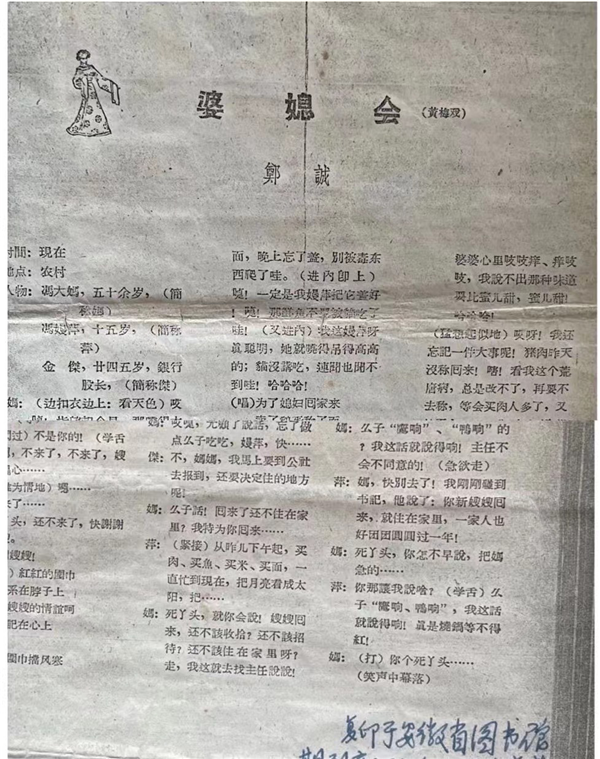 婆媳会(黄梅戏)
鄭誠
时間:現在
地点:农村
人物:馮大媽,五十余岁,(簡
称媽)
馮嫚萍,十五岁,(簡称
萍)
金傑,廿四五岁,銀行
股长,(簡称傑)
媽:(边扣衣边上:看天色)哎
面,晚上忘了盖,別被毒东
西爬了哇。(进內卽上)
嘎!一定是我嫚萍把它盖好
哇!(又进內)我这嫚萍呀
眞聪明,她就曉得吊得高高
的;貓沒講吃,連聞也聞不
到哇!哈哈哈!
(唱)为了媳妇囘家来
婆婆心里吱吱痒、痒吱
吱,我說不出那种味道
要比蜜儿甜,蜜儿甜!
哈哈哈!
(猛想起似地)哎呀!我还
忘記一件大事呢!豬肉昨天
沒称囘来!嗐!看我这个荒
唐病,总是改不了,再要不
去称,等会买肉人多了,又
过)不是你的!(学舌
,不来了,不来了,嫂
心……
为情地)嗯……
头,还不来了,快謝謝
嫂嫂!
)紅紅的圍巾
来在脖子上
嫂嫂的情誼呵
記在心上
圍巾擋风寒
媽:哎嘎,光顧了說話,忘了做
点么子吃吃,嫚萍,快……
傑:不,媽媽,我馬上要到公社
去报到,还要决定住的地方
呢!
媽:么子話!囘来了还不住在家
里?我特为你囘来……
萍:(紧接)从昨儿下午起,买
肉、买魚、买米、买面,一
直忙到現在,把月亮看成太
阳,把……
媽:死丫头,就你会說!嫂嫂囘
来,还不該收拾?还不該招
待?还不該住在家里呀?
走,我这就去找主任說說!
媽:么子“鷹响”、“鴨响”的
?我这話就說得响!主任不
会不同意的!(急欲走)
萍:媽,快別去了!我剛剛碰到
书記,他說了:你新嫂嫂囘
来,就住在家里,一家人也
好团团圓圓过一年!
媽:死丫头,你怎不早說,把媽
急的……
萍:你那讓我說啥?(学舌)么
子“鷹响、鴨响”,我这話
就說得响!眞是燒鍋等不得
紅!
媽:(打)你个死丫头……
(笑声中幕落)
复印于安徽省图书馆